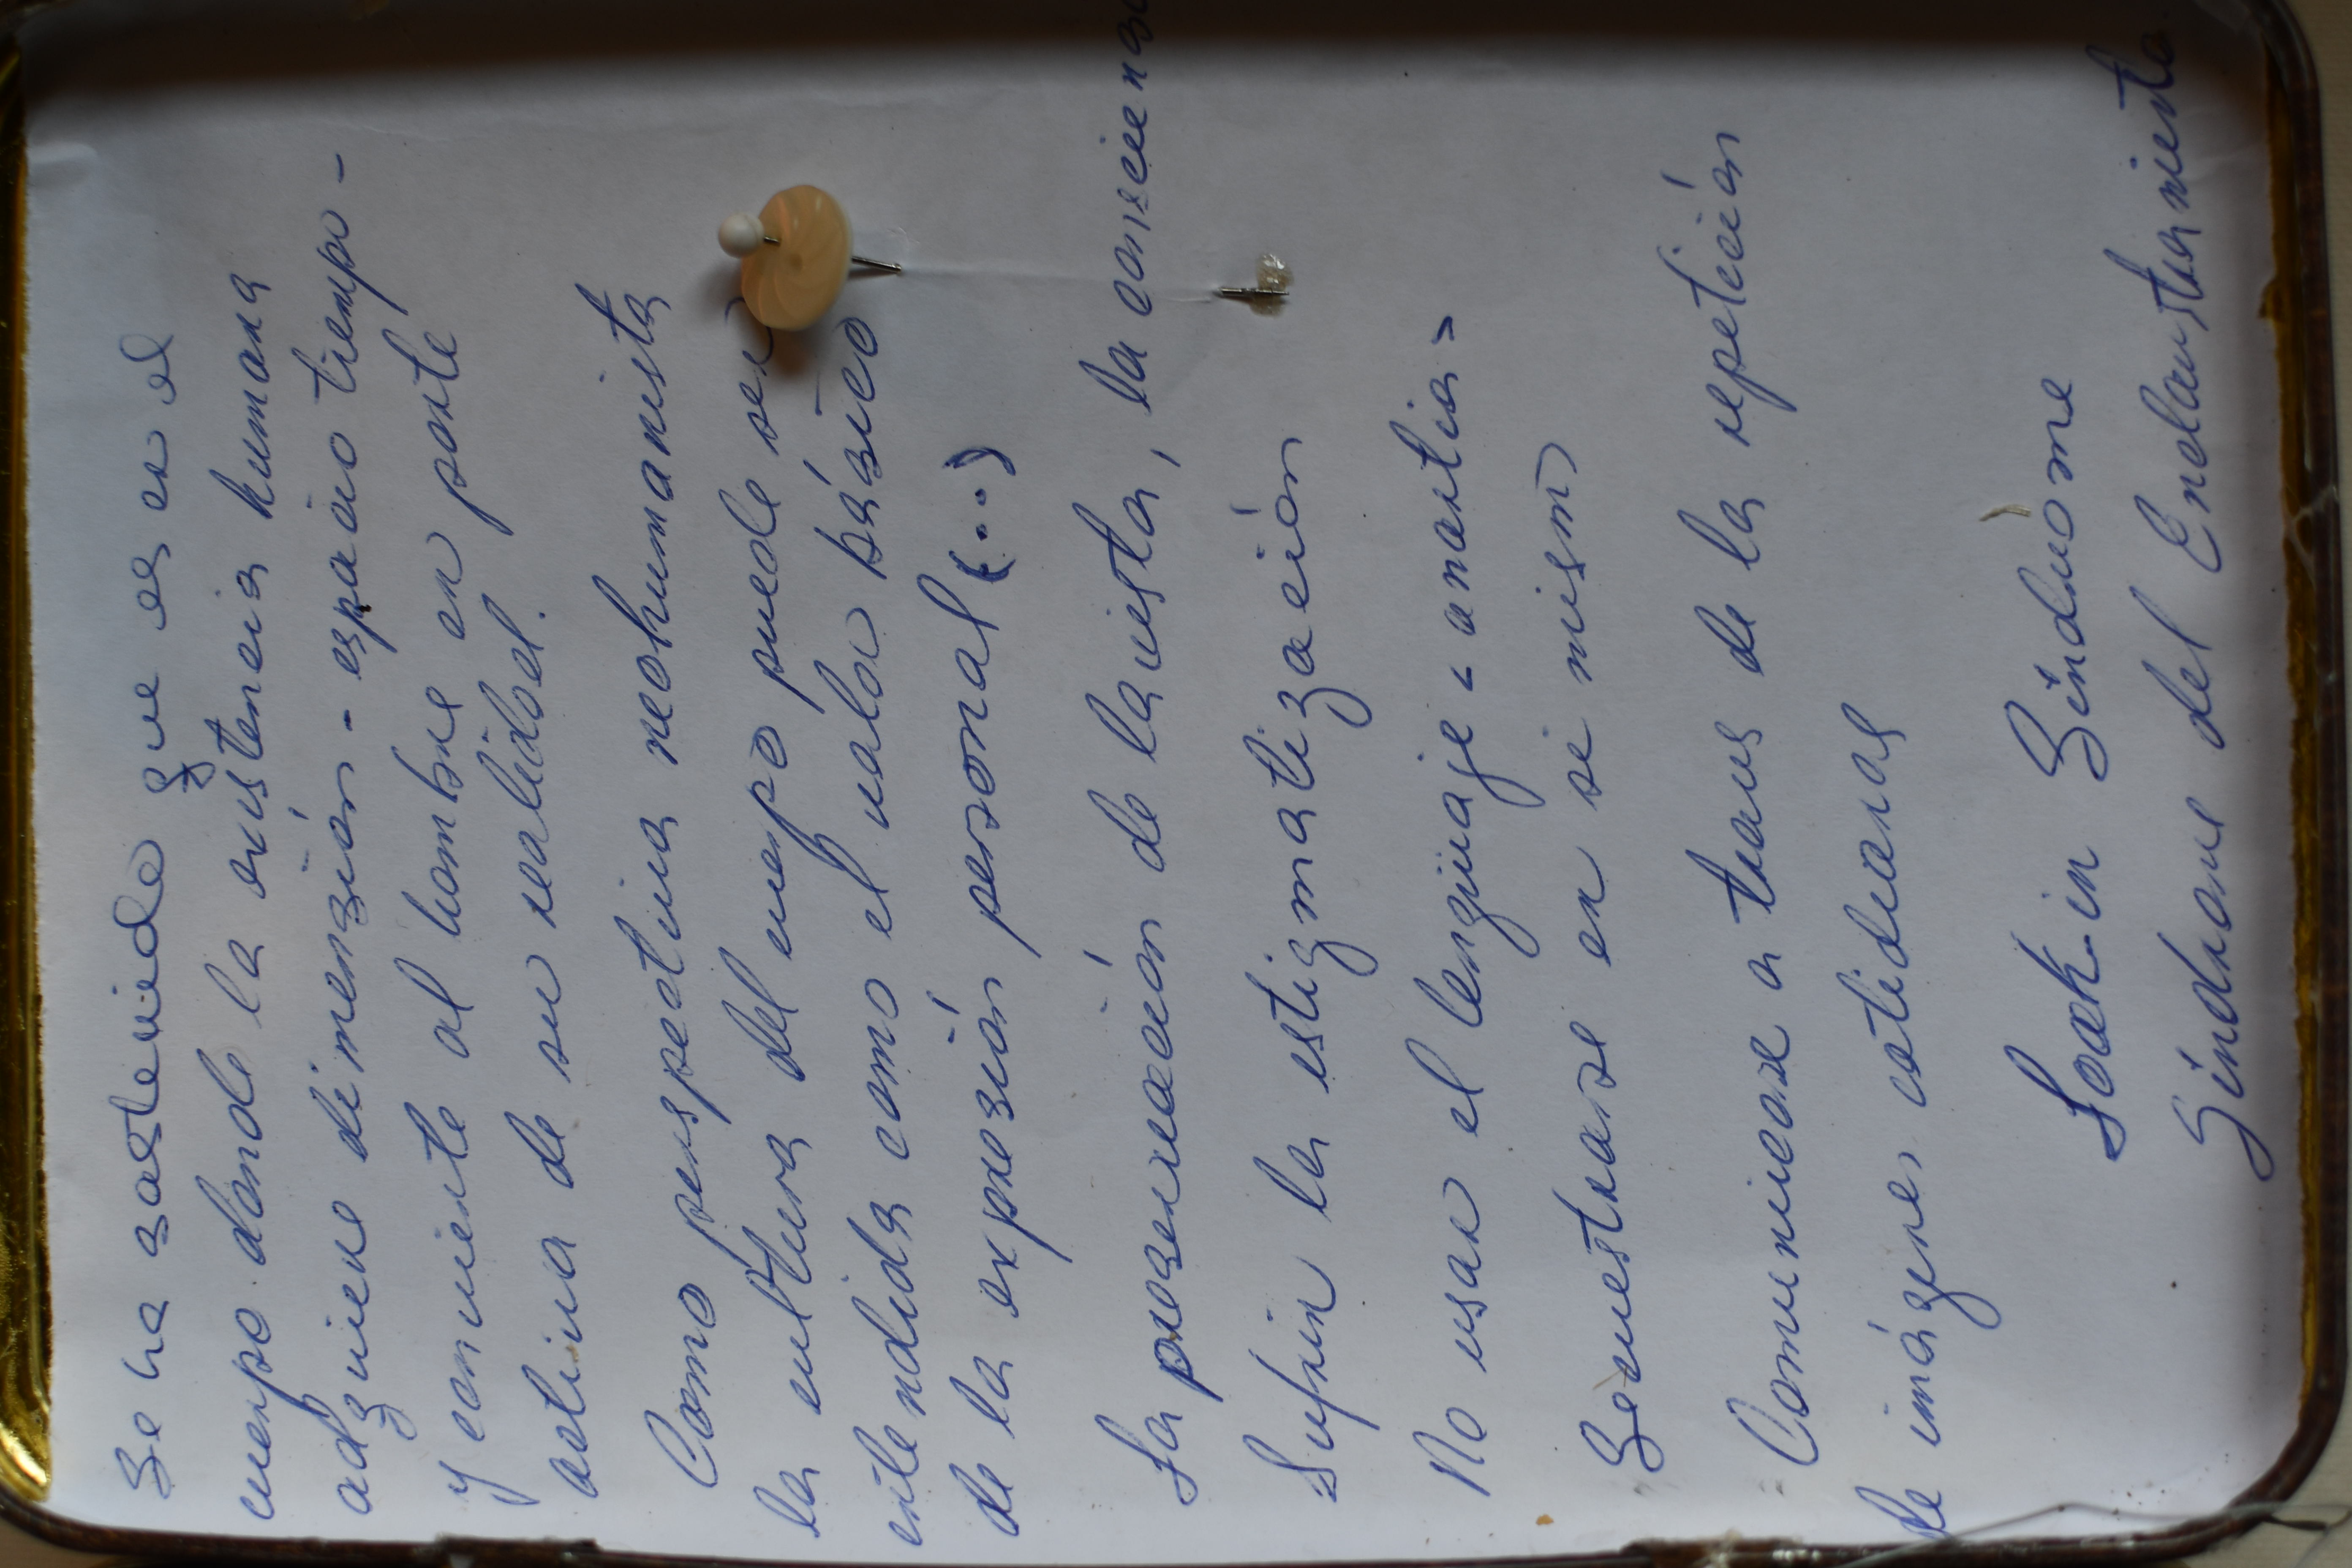 Se ha sostenido que es en el
cuerpo donde la existencia humana
adquiere dimenzión - espacio tiempo -
y convierte al hombre en parte
activa de su realidad.
Como perspectiva neohumanista
la cultura del cuerpo puede ser
entendida como el valor básico
de la exprezión personal (...)
La preservación de la vista, la
Sufrir la estigmatización
No usar el lengüaje "anartria"
Secuestrarse en si mismo
Comunicarse a traves de la repetición
de imágenes cotidianas
Lock-in Síndrome
Síndrome del Enclaustramiento